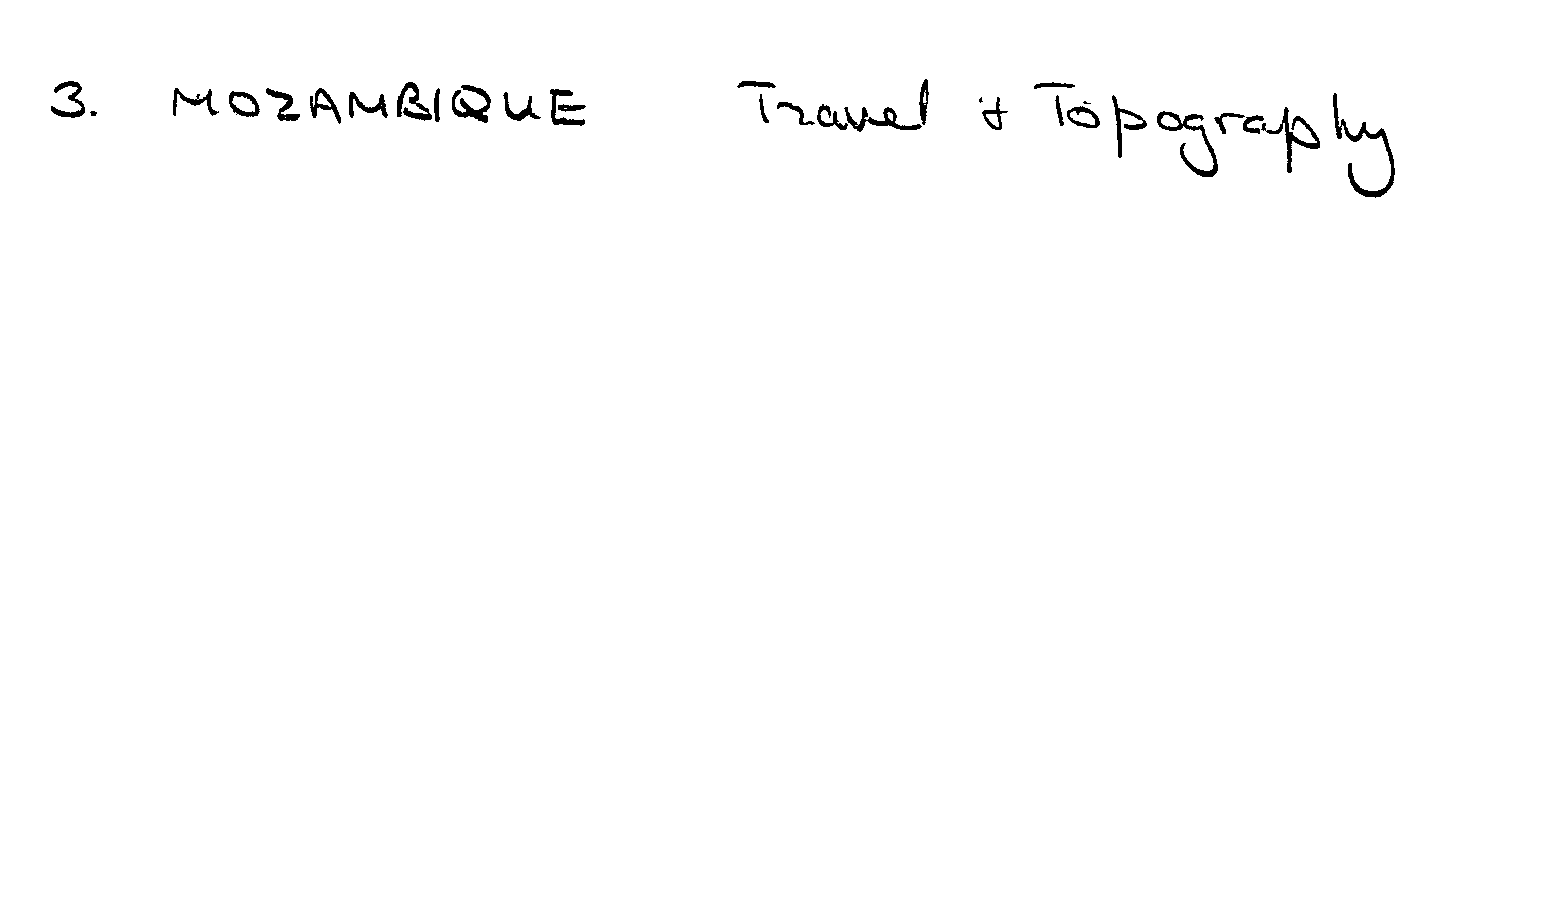 3. MOZAMBIQUE Travel & Topography